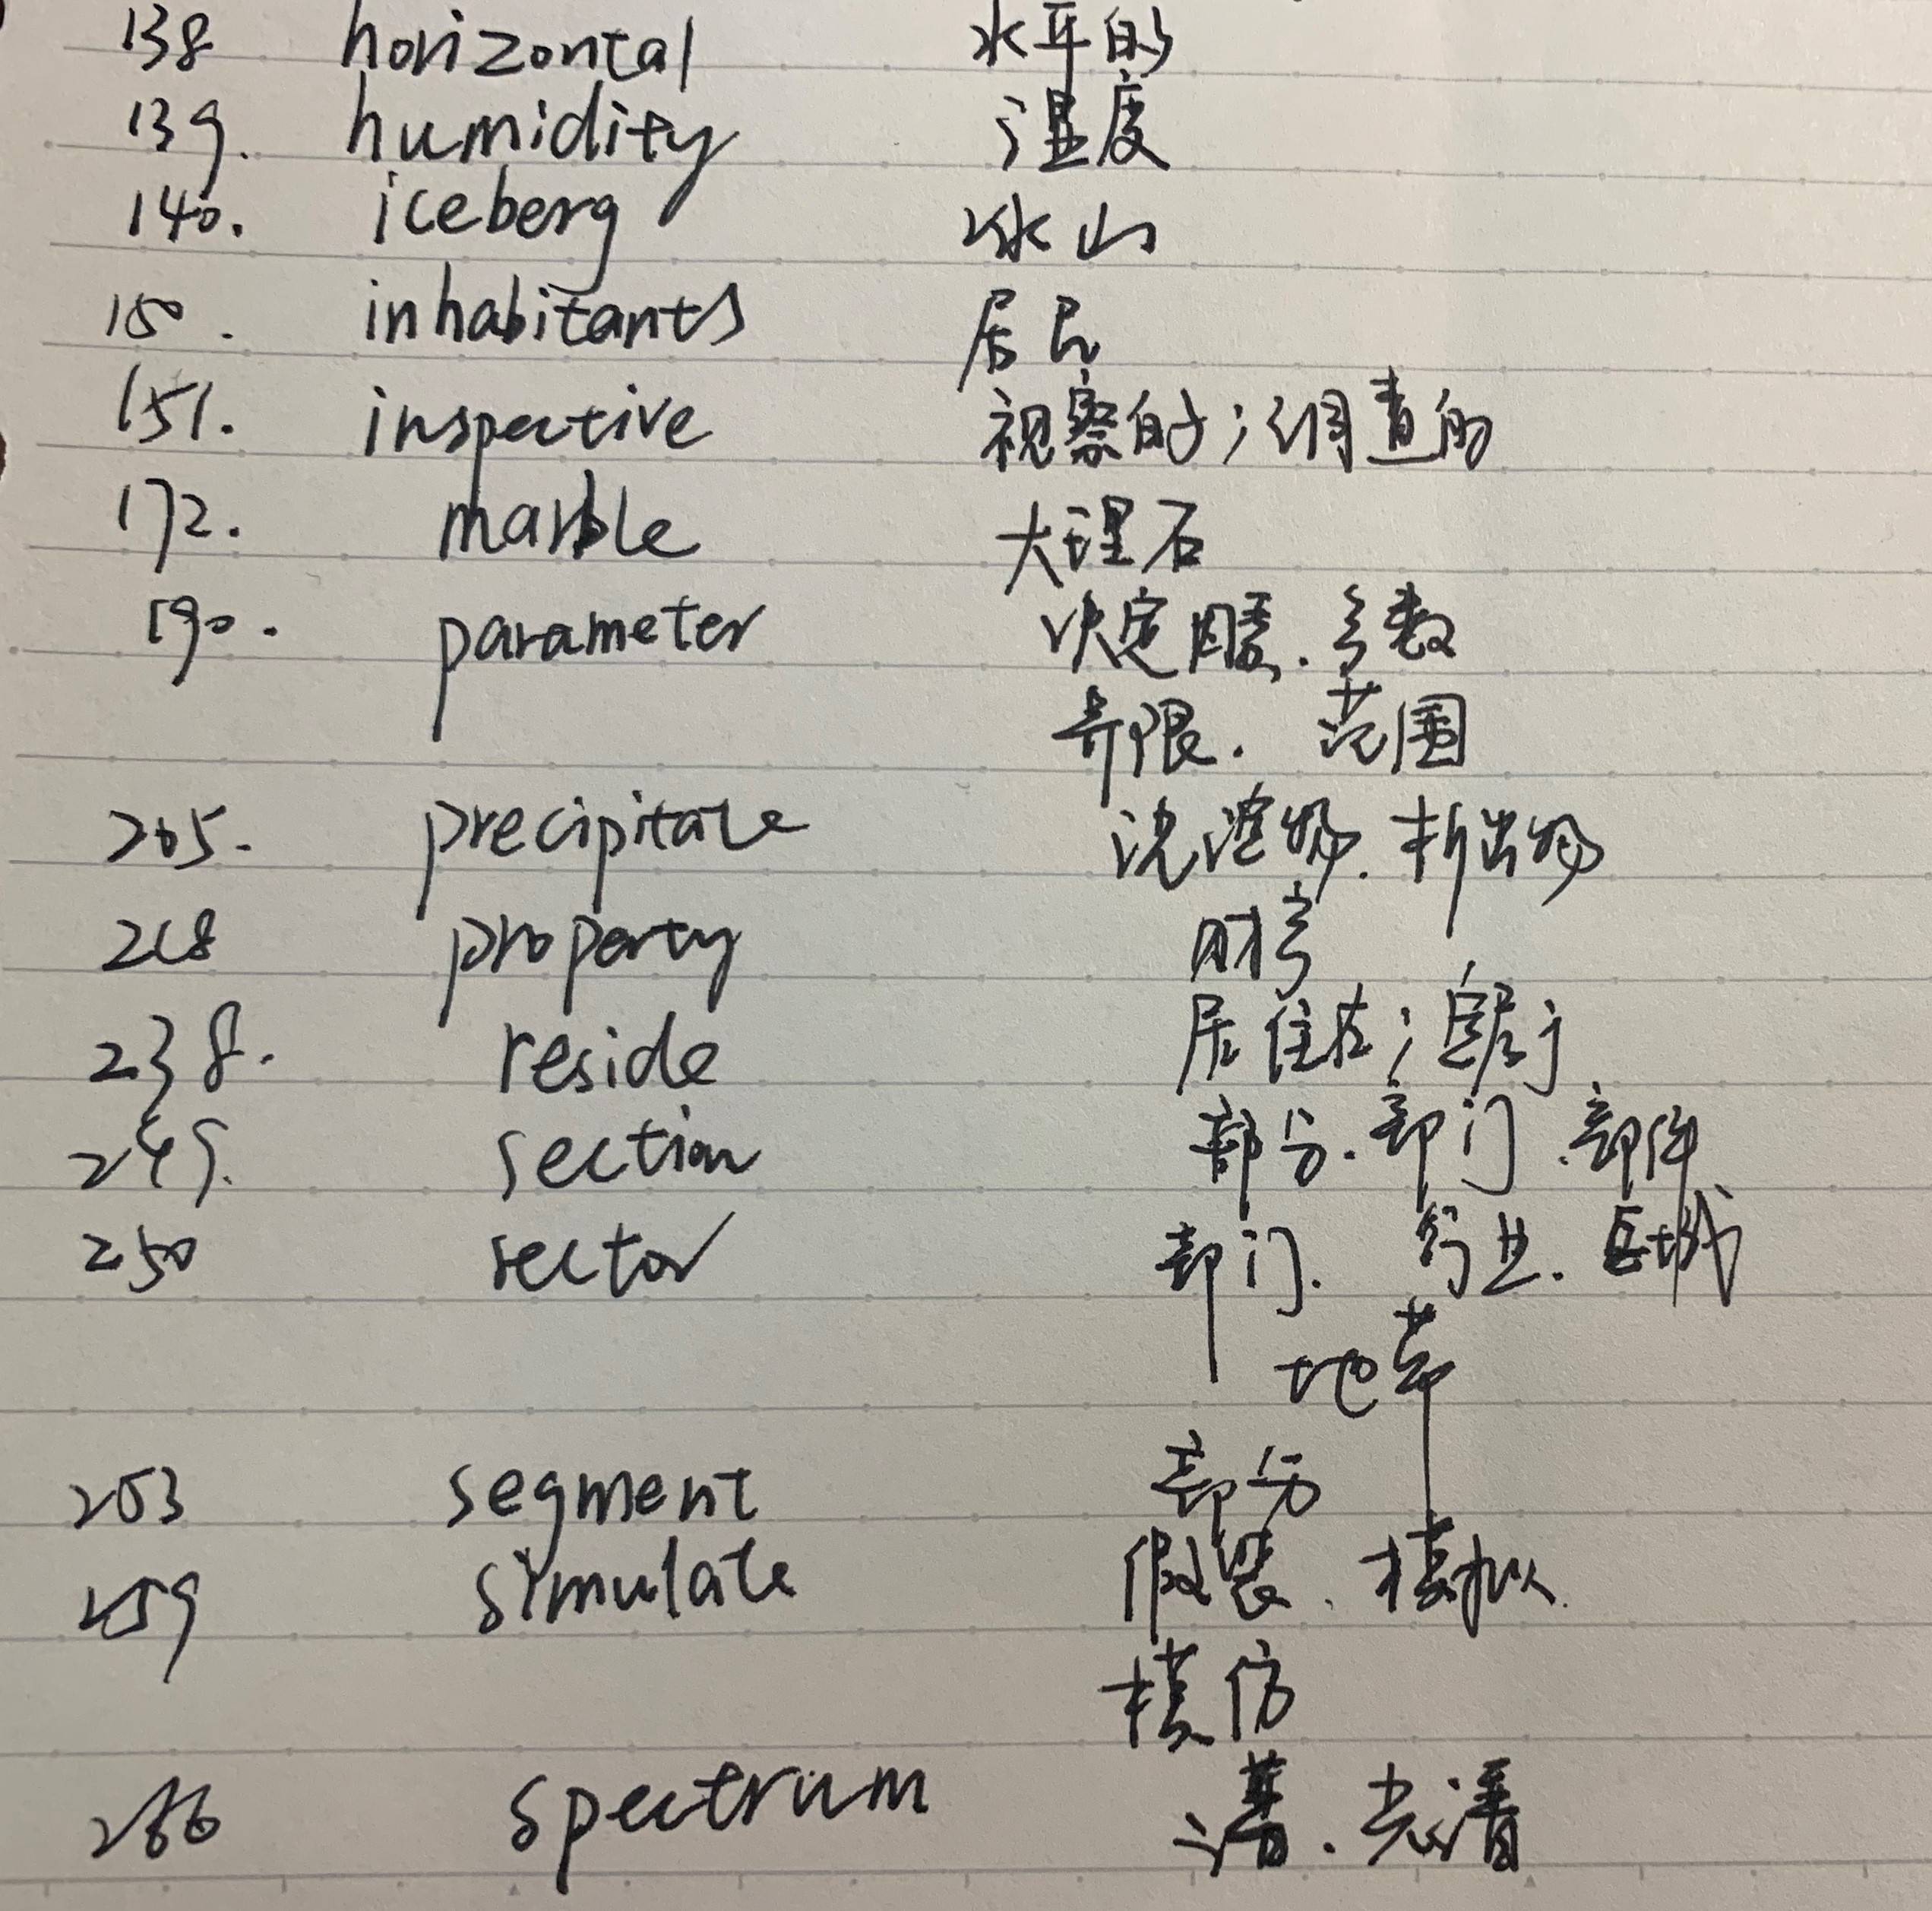 138 horizontal 水平的
139. humidity 湿度
140. iceberg 冰山
150. inhabitants 居民
151. inspective 视察的；调查的
172. marble 大理石
190. parameter 决定因素.参数
界限. 范围
205. precipitate 沉淀物.析出物
218 property 财产
238. reside 居住在；定居于
249. section 部分.部门.部件
250 sector 部门. 行业.区域
地带
253 segment 部分
259 simulate 假装.模拟.
模仿
266 spectrum 谱.光谱